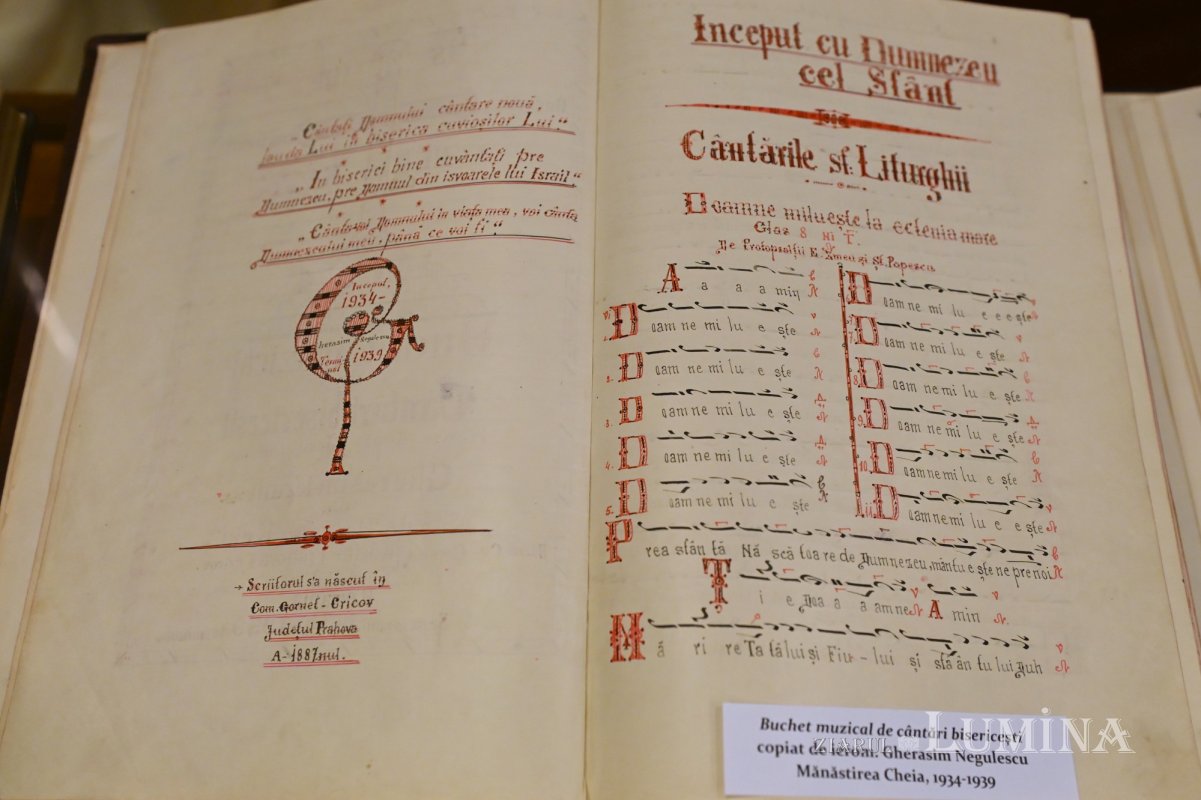 „Cântați Domnului cântare nouă,
lauda Lui în biserica cuvioșilor Lui.”
„In biserici bine cuvântați pre
Dumnezeu, pre Domnul din isvoarele lui Israil.”
„Cânta-voi Domnului in viața mea, voi cânta
Dumnezeului meu, până ce voi fi.”
Inceput,
1934-
Gherasim Negulescu
Termi-
nat
1939
Scriitorul s'a născut în
Com. Gornet-Cricov
Județul Prahova
A-1887nul.
Inceput cu Dumnezeu
cel Sfânt
Cântările sf: Liturghii
Doamne miluește la ectenia mare
Glas 8 Ni
De Protopsalții E. Zmeu și Șt. Popescu
A a a a min
D oam ne mi lu e ște
2. D oam ne mi lu e ște
3. D oam ne mi lu e ște
4. D oam ne mi lu e ște
5. D oam ne mi lu e ște
D oam ne mi lu e e e ște
7. D oam ne mi lu e ște
8. D oam ne mi lu e ște
9. D oam ne mi lu e ște
10. D oam ne mi lu e ște
11. D oam ne mi lu e e ște
P rea sfân tă Nă scă toa re de Dumnezeu, mântu e ște ne pre noi
Ț i e Doa a a am ne A min
M ă ri re Ta tă lui și Fiu - lui și sfâ ân tu lui Duh
Buchet muzical de cântări bisericești
copiat de Ierom. Gherasim Negulescu
Mănăstirea Cheia, 1934-1939
ZIARUL LUMINA